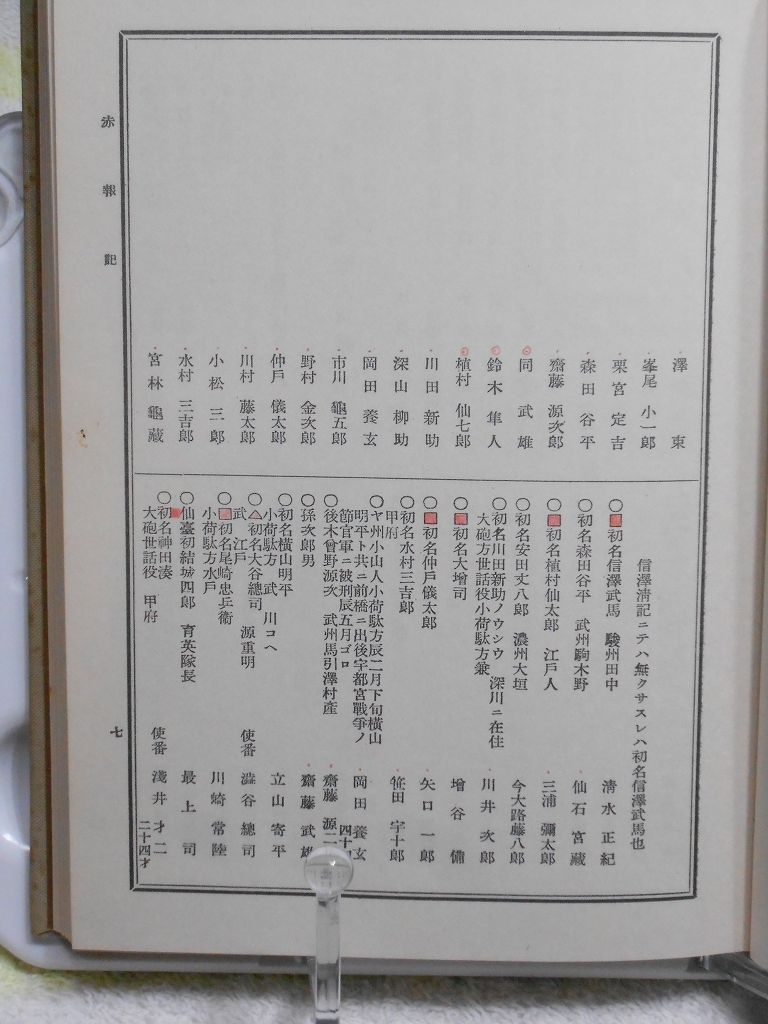 赤報記
澤東
峯尾小一郎
栗宮定吉
森田谷平
齋藤源次郎
同武雄
鈴木隼人
植村仙七郎
川田新助
深山柳助
岡田養玄
市川龜五郎
野村金次郎
仲戶儀太郎
川村藤太郎
小松三郎
水村三吉郎
宮林龜藏
信澤淸記ニテハ無クサスレハ初名信澤武馬也
〇初名信澤武馬 駿州田中 淸水正紀
〇初名森田谷平 武州駒木野 仙石宮藏
〇初名植村仙太郎 江戶人 三浦彌太郎
〇初名安田丈八郎 濃州大垣 今大路藤八郎
〇初名川田新助ノウシウ 深川ニ在住
大砲方世話役小荷駄方兼 川井次郎
〇初名大增司 增谷備
〇初名仲戶儀太郎 矢口一郎
〇初名水村三吉郎
甲府 笹田宇十郎
〇ヤ州小山人小荷駄方辰二月下旬橫山
明平ト共ニ前橋ニ出後宇都宮戰爭ノ
節官軍ニ被刑辰五月ゴロ 岡田養玄
四十
〇後木曾野源次 武州馬引澤村產 齋藤源二
〇孫次郎男 齋藤武雄
〇初名橫山明平
小荷駄方 武 川コヘ 立山寄平
〇△初名大谷總司 源重明
武 江戶 使番 澁谷總司
〇初名尾崎忠兵衞
小荷駄方水戶 川崎常陸
〇仙臺初結城四郎 育英隊長 最上司
〇初名神田湊
大砲世話役 甲府 使番 淺井才二
二十四才
七